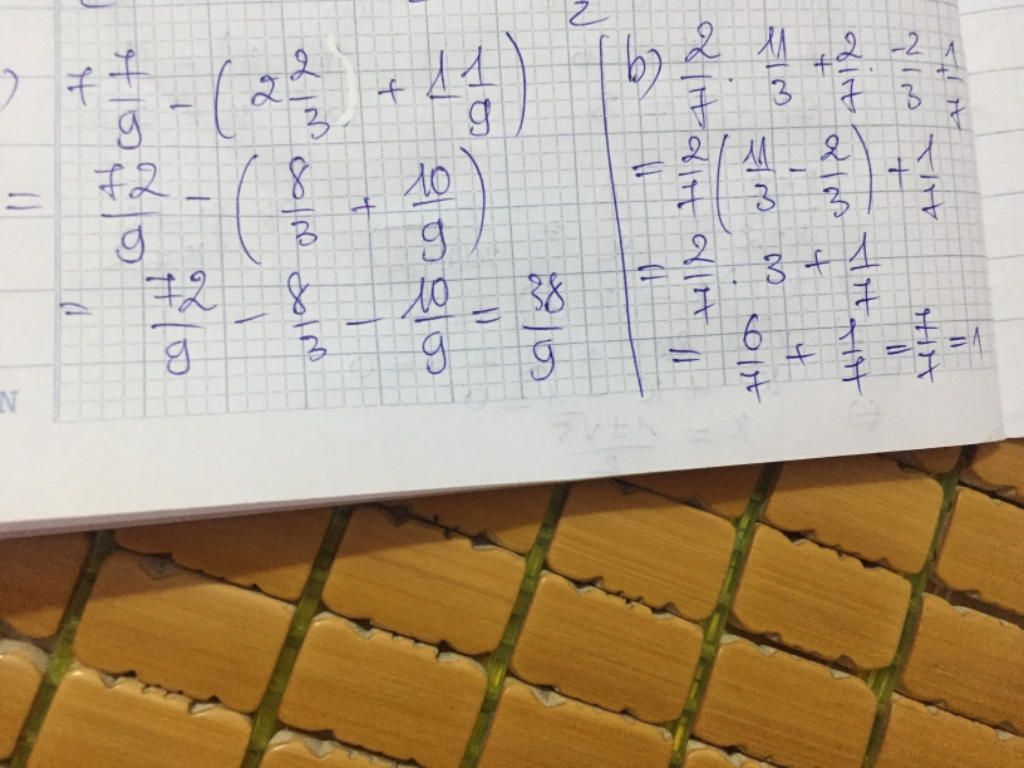 ) 7 7/9 - (2 2/3) + 1 1/9)
= 72/9 - (8/3 + 10/9)
= 72/9 - 8/3 - 10/9 = 38/9
b) 2/7 . 11/3 + 2/7 . -2/3 + 1/7
= 2/7 (11/3 - 2/3) + 1/7
= 2/7 . 3 + 1/7
= 6/7 + 1/7 = 7/7 = 1
N